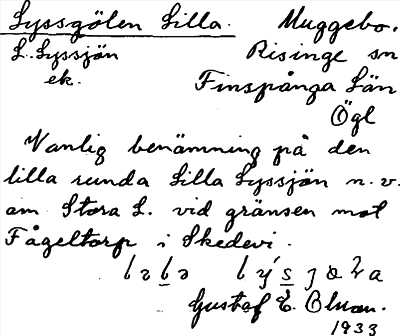 Lyssgölen Lilla. Muggebo.
L. Lyssjön Risinge sn
ek. Finspånga Län
Ögl
Vanlig benämning på den
lilla runda Lilla Lyssjön n.v.
om Stora L. vid gränsen mot
Fågeltorp i Skedevi.
Gustaf E. Olsson.
1933